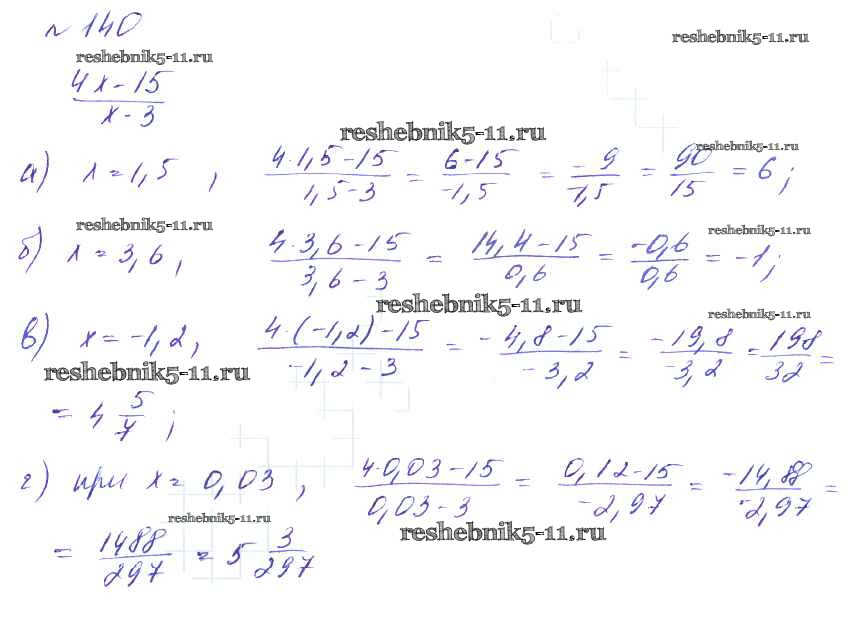 № 140
reshebnik5-11.ru reshebnik5-11.ru
(4x-15)/(x-3)
reshebnik5-11.ru
reshebnik5-11.ru
а) x=1,5, (4·1,5-15)/(1,5-3) = (6-15)/(-1,5) = (-9)/(1,5) = 90/15 = 6;
reshebnik5-11.ru reshebnik5-11.ru
б) x=3,6, (4·3,6-15)/(3,6-3) = (14,4-15)/(0,6) = (-0,6)/(0,6) = -1;
reshebnik5-11.ru
reshebnik5-11.ru
в) x=-1,2, (4·(-1,2)-15)/(-1,2-3) = (-4,8-15)/(-3,2) = (-19,8)/(-3,2) = 198/32 =
reshebnik5-11.ru
= 4 5/7;
г) при x=0,03, (4·0,03-15)/(0,03-3) = (0,12-15)/(-2,97) = (-14,88)/(-2,97) =
reshebnik5-11.ru reshebnik5-11.ru
= 1488/297 = 5 3/297